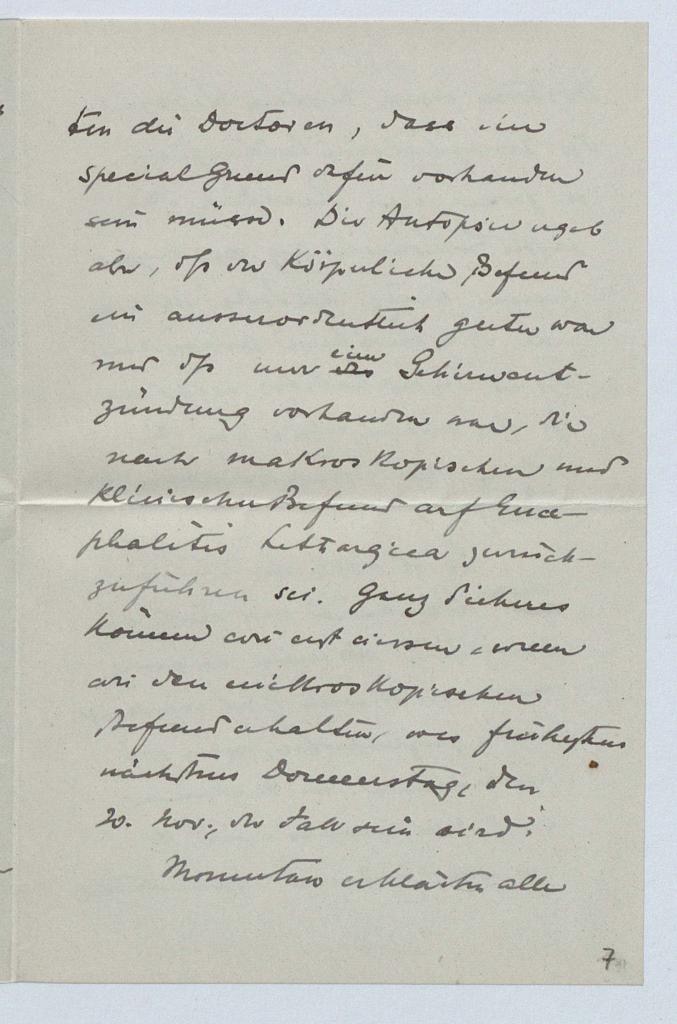 ten die Doctoren, dass ein
special Grund dafür vorhanden
sein müsse. Die Autopsie ergab
aber, dß der Körperliche Befund
ein ausserordentlich guter war
und dß nur eine Gehirnent-
zündung vorhanden war, die
nach makroskopischen und
klinischen Befund auf Ence-
phalitis Lethargica zurück-
zuführen sei. Ganz sicheres
können wir erst wissen, wenn
wir den mikroskopischen
Befund erhalten, was frühestens
nächstens Donnerstag, den
20. Nov., der Fall sein wird.
Momentan erklärten alle
7